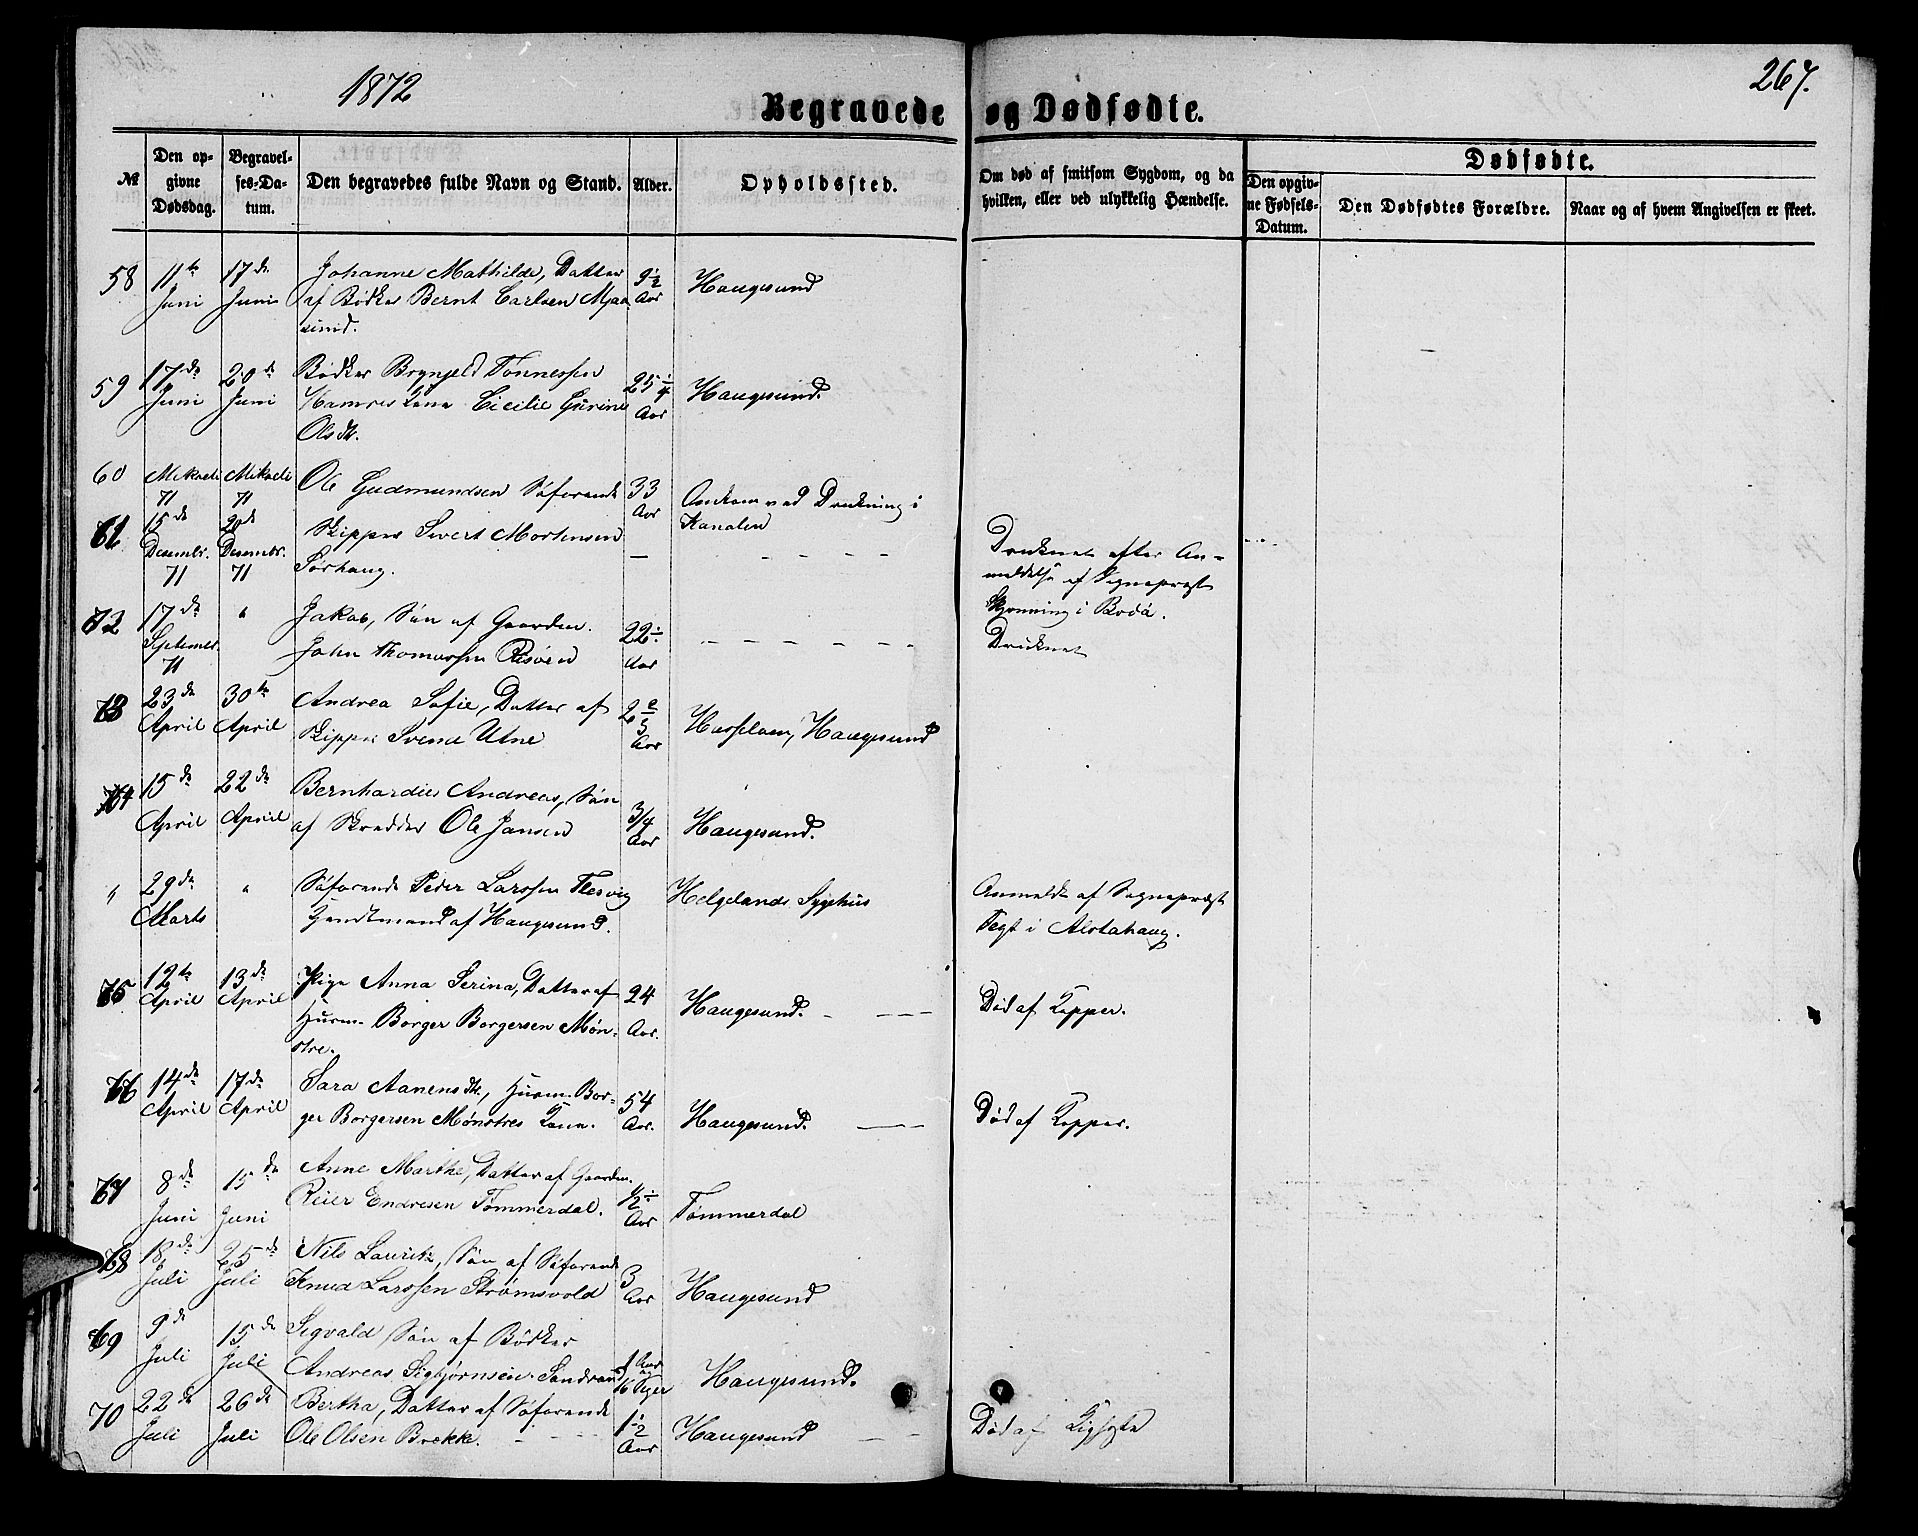 1872
267.
Begravede og Dødfødte.
№
Den opgivne Dødsdag.
Begravelses-Datum.
Den begravedes fulde Navn og Stand.
Alder.
Opholdssted.
Om død af smitsom Sygdom, og da hvilken, eller ved ulykkelig Hændelse.
Dødfødte.
Den opgivne Fødsels-Datum.
Den Dødfødtes Forældre.
Naar og af hvem Angivelsen er skeet.
58 11te Juni 17de Juni Johanne Mathilde, Datter 9½ Aar Haugesund
af Bødker Bernt Carlsen Mjaa
sund.
59 17de Juni 20de Juni Bødker Brynjeld Tønnessen 25¼ Aar Haugesund.
Hamres Kone Cicilie Gurine
Olsdtr.
60 Mikaeli 71 Mikaeli 71 Ole Gudmundsen Søfarende 33 Aar Omkom ved Drukning i
Kanalen
61 15de Desembr. 71 20de Desembr. 71 Skipper Sivert Mortensen — Druknet efter An-
Sørhaug. meldelse af Sognepræst
i Bodø.
62 17de Septembr. 71 " Jakob, Søn af Gaardm. 22½ Aar Druknet
John Thomassen Risøen
63 23de April 30te April Andrea Sofie, Datter af 2 Aar
Skipper Svend Utne Hasseloen, Haugesund
64 15de April 22de April Bernhardus Andreas, Søn 3/4 Aar
af Skredder Ole Jansen Haugesund.
" 29de Marts " Søfarende Peder Larssen Flesvig Helgelands Sygehus Anmeldt af Sognepræst
af Haugesund. i Alstahaug.
65 12te April 13de April Pige Anna Serina, Datter af 24 Aar. Haugesund. Død af Kopper.
Husm. Borger Borgersen Møn-
stre.
66 14de April 17de April Sara Aanensdtr., Husm. Bor- 54 Aar. Haugesund. Død af Kopper.
ger Borgersen Mønstres Kone.
67 8de Juni 15de Juni Anne Marthe, Datter af Gaardm. ½ Aar Tømmerdal
Reier Endresen Tømmerdal.
68 18de Juli 25de Juli Nils Lauritz, Søn af Søfarende 3 Aar Haugesund
Knud Larssen Strømsvold
69 9de Juli 15de Juli Sigvald Søn af Bødker
Andreas Sigbjørnsen Sandvand 1 Aar 16 Uger Haugesund.
70 22de Juli 26de Juli Bertha, Datter af Søfarende 1½ Aar Haugesund Død af Kighoste
Ole Olsen Brekke.